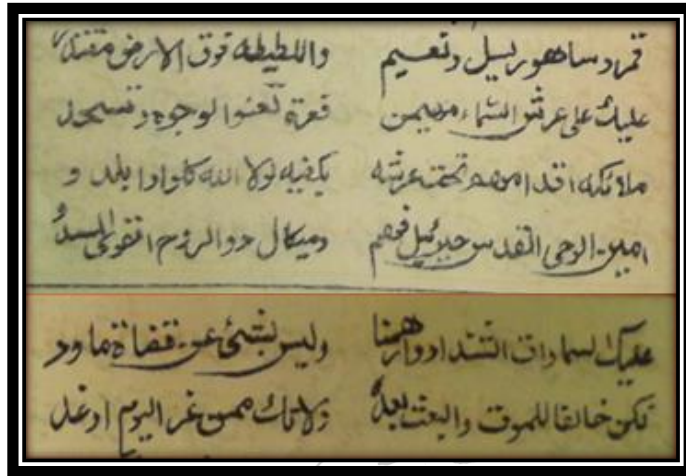 قمر وساهور يسل وتعيم واللطيطه فوق الارض مقتد
عليك على عرش السماء مهيمن فعزة تعنوا الوجوه وتسجد
ملائكه اقدامهم تحت عرشه بكفيه لولا الله كلوا وابلد و
امين الوحى القدس جبرئيل فيهم وميكال ذو الروح القوى المسدد
عليك السماوات الشداد وارضنا وليس بشئ عن قضاة ماود
تكن خالفا للموت والبعث بعده ولاتك ممن غر اليوم اوغد